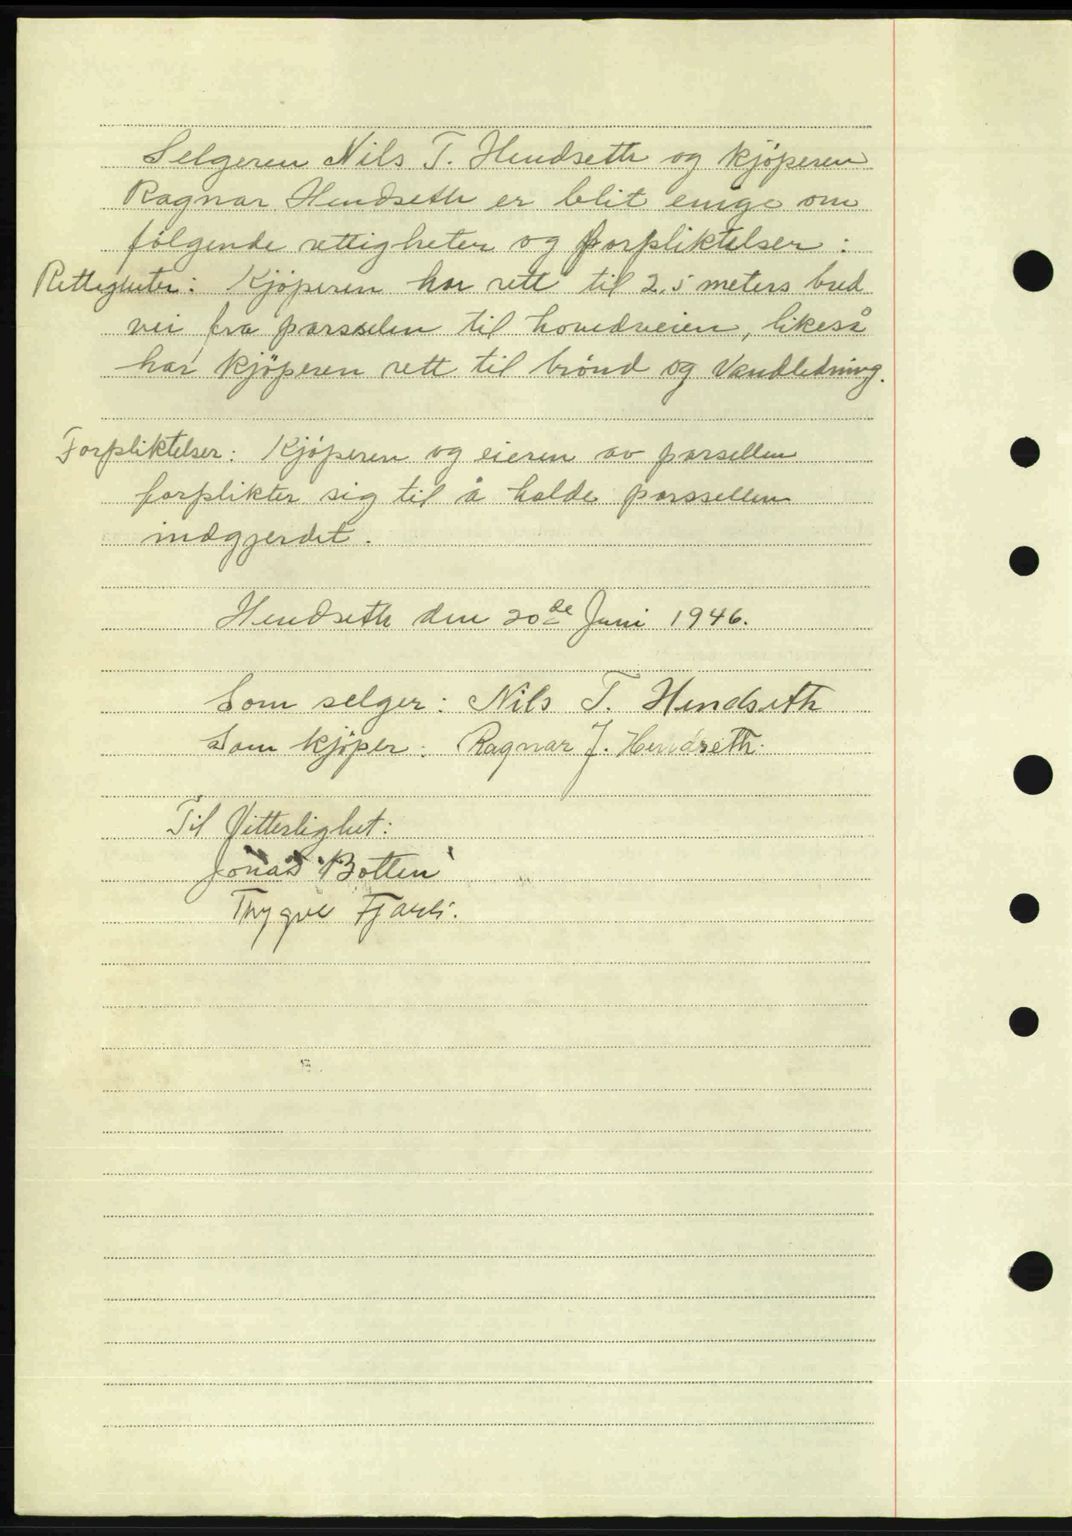 Selgeren Nils T. Hendseth og kjøperen
Ragnar Hendseth er blit enige om
følgende rettigheter og forpliktelser :
Rettigheter : Kjøperen har rett til 2,5 meters bred
vei fra parsselen til hovedveien, likeså
har kjøperen rett til brønd og Vandledning.
Forpliktelser : Kjøperen og eieren av parsellen
forplikter sig til å holde parssellen
indgjerdet .
Hendseth den 20de Juni 1946.
Som selger : Nils T. Hendseth
Som kjøper : Ragnar J. Hendseth.
Til Vitterlighet :
Jonas Botten
Thygve